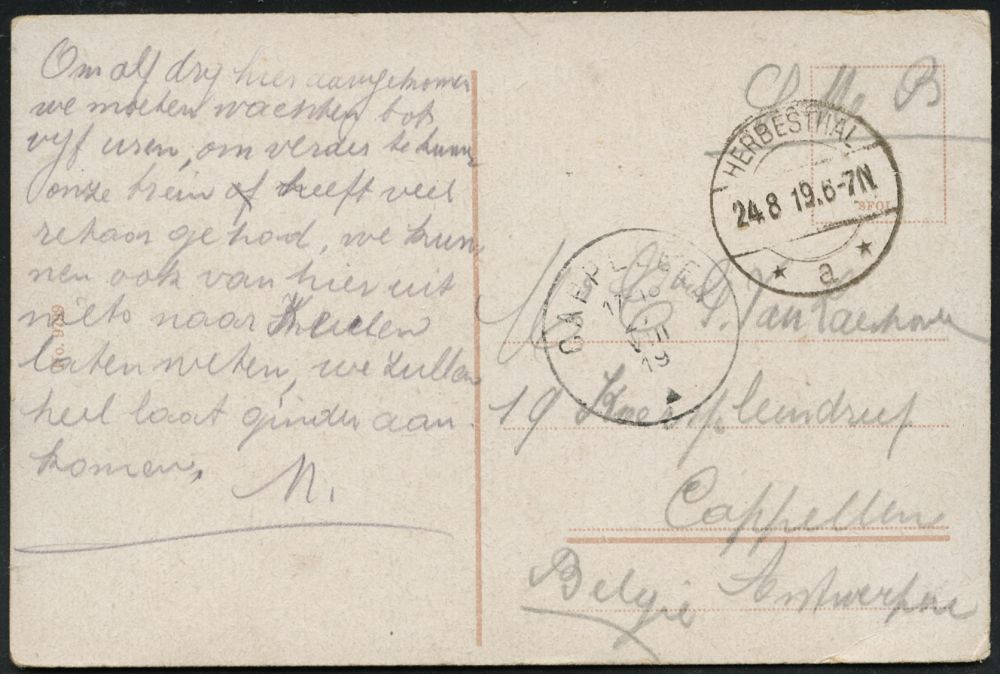 Om alf dry hier aangekomen
we moeten wachten tot
vyf uren, om verder te kunnen
onze trein heeft veel
retaar gehad, we kun
nen ook van hier uit
niets naar Keulen
laten weten, we zullen
heel laat ginder aan
komen,
N.
No. 9709
S. M. B
HERBESTHAL
24.8 19.6-7N
* a *
CAPELLEN
VIII
19
P. Van
19
Cappellen
België Antwerpen